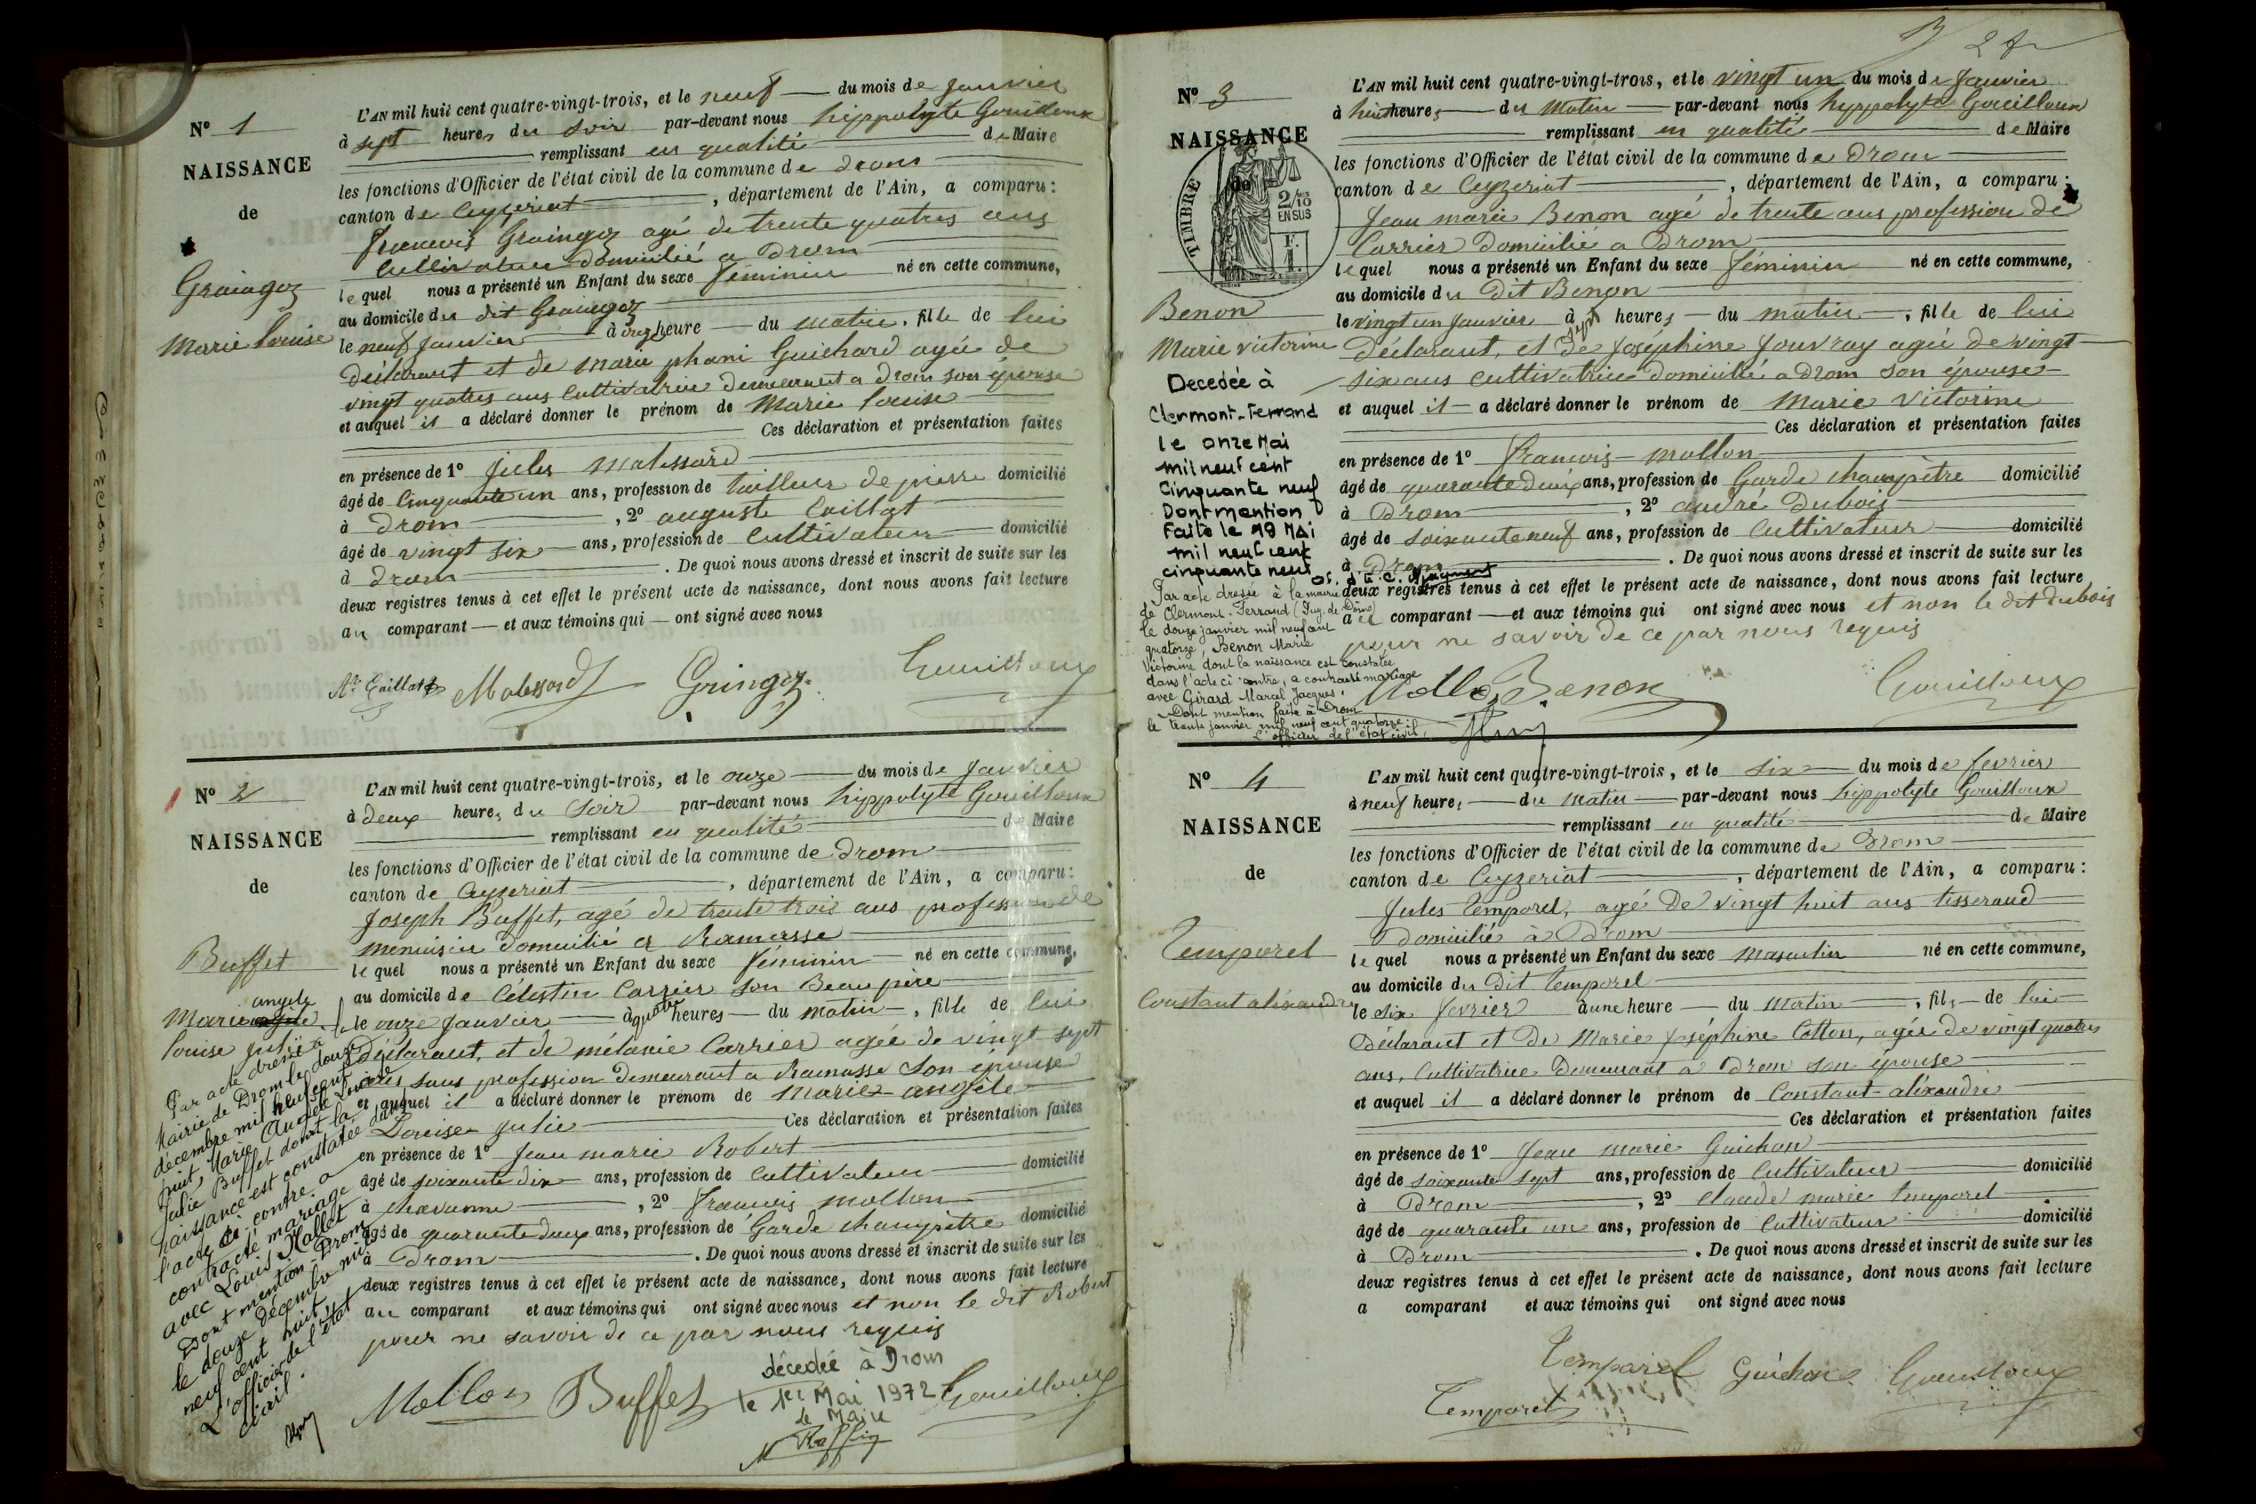 N° 1
NAISSANCE
de
Graingoz
Marie louise
L'AN mil huit cent quatre-vingt-trois, et le neuf du mois de Janvier
à sept heures du soir par-devant nous hyppolyte Gouilloux
remplissant en qualité de Maire
les fonctions d'Officier de l'état civil de la commune de drom
canton de Ceyzeriat, département de l'Ain, a comparu:
francois Graingoz agé de trente quatres ans
Cultivateur domicilié a Drom
lequel nous a présenté un Enfant du sexe féminin né en cette commune,
au domicile du dit Graingoz
le neuf Janvier à onze heure du matin, fille de lui
déclarant et de marie phani Guichard agée de
vingt quatres ans Cultivatrice demeurant a drom son épouse
et auquel il a déclaré donner le prénom de Marie louise
Ces déclaration et présentation faites
en présence de 1° Jules Malessard
âgé de Cinquante un ans, profession de tailleur de pierre domicilié
à Drom, 2° auguste Caillat
âgé de vingt six ans, profession de Cultivateur domicilié
à drom. De quoi nous avons dressé et inscrit de suite sur les
deux registres tenus à cet effet le présent acte de naissance, dont nous avons fait lecture
au comparant et aux témoins qui ont signé avec nous
Malessard Gringoz Gouilloux
N° 2
NAISSANCE
de
Buffet
angele
Marie
louise julie
L'AN mil huit cent quatre-vingt-trois, et le onze du mois de Janvier
à deux heures du soir par-devant nous hyppolyte Gouilloux
remplissant en qualité de Maire
les fonctions d'Officier de l'état civil de la commune de Drom
canton de Ceyzeriat, département de l'Ain, a comparu:
Joseph Buffet, agé de trente trois ans profession de
menuisier domicilié a Ramasse
lequel nous a présenté un Enfant du sexe féminin né en cette commune,
au domicile de Célestin Carrier son Beau père
le onze Janvier à quatre heures du matin, fille de lui
Déclarant, et de mélanie Carrier agée de vingt sept
ans sans profession demeurant a Ramasse son épouse
et auquel il a déclaré donner le prénom de Marie angèle
Louise Julie Ces déclaration et présentation faites
en présence de 1° Jean marie Robert
âgé de soixante dix ans, profession de Cultivateur domicilié
à chavanne, 2° francois mollon
âgé de quarante deux ans, profession de Garde champêtre domicilié
à Drom. De quoi nous avons dressé et inscrit de suite sur les
deux registres tenus à cet effet le présent acte de naissance, dont nous avons fait lecture
au comparant et aux témoins qui ont signé avec nous et non le dit Robert
pour ne savoir de ce par nous requis
Par acte dressé à
Mairie de Drom le douze
décembre mil neuf cent
huit, Marie Angèle Louise
Julie Buffet dont la
naissance est constatée dans
l'acte ci-contre a
contracté mariage
avec Louis Mallet
Dont mention à Drom
le douze décembre mil
neuf cent huit
L'officier de l'état
civil.
Mollon Buffet Gouilloux
décédée à Drom
le 1er Mai 1972
Le Maire
2 fr
N° 3
NAISSANCE
de
TIMBRE
2/10
EN SUS
F.
1.
Benon
Marie victorine
Decedée à
Clermont-Ferrand
le onze Mai
mil neuf cent
cinquante neuf
Dont mention
Faite le 19 MAi
mil neuf cent
cinquante neuf
Par acte dressé à la mairie
de Clermont-Ferrand (Puy de Dôme)
le douze janvier mil neuf cent
quatorze, Benon Marie
Victorine dont la naissance est constatée
dans l'acte ci contre, a contracté mariage
avec Girard Marcel Jacques.
Dont mention faite à Drom
le trente janvier mil neuf cent quatorze.
L'officier de l'état civil,
L'AN mil huit cent quatre-vingt-trois, et le vingt un du mois de Janvier
à huit heures du Matin par-devant nous hyppolyte Gouilloux
remplissant en qualité de Maire
les fonctions d'Officier de l'état civil de la commune de Drom
canton de Ceyzeriat, département de l'Ain, a comparu:
Jean marie Benon agé de trente ans profession de
Carrier Domicilié a Drom
lequel nous a présenté un Enfant du sexe féminin né en cette commune,
au domicile du Dit Benon
le vingt un Janvier à sept heures du matin, fille de lui
Déclarant, et de Joséphine Jouvray agée de vingt
six ans cultivatrice domicilié a drom son épouse
et auquel il a déclaré donner le prénom de Marie Victorine
Ces déclaration et présentation faites
en présence de 1° francois mollon
âgé de quarante deux ans, profession de Garde champêtre domicilié
à Drom, 2° andré Dubois
âgé de soixante neuf ans, profession de Cultivateur domicilié
à Drom. De quoi nous avons dressé et inscrit de suite sur les
deux registres tenus à cet effet le présent acte de naissance, dont nous avons fait lecture
au comparant et aux témoins qui ont signé avec nous et non le dit dubois
pour ne savoir de ce par nous requis
Mollon Benon Gouilloux
N° 4
NAISSANCE
de
Temporel
Constant alixandre
L'AN mil huit cent quatre-vingt-trois, et le six du mois de fevrier
à neuf heures du Matin par-devant nous hyppolyte Gouilloux
remplissant en qualité de Maire
les fonctions d'Officier de l'état civil de la commune de Drom
canton de Ceyzeriat, département de l'Ain, a comparu:
Jules Temporel, agé De vingt huit ans tisserand
Domicilié à Drom
lequel nous a présenté un Enfant du sexe masculin né en cette commune,
au domicile du Dit Temporel
le six fevrier à une heure du Matin, fils de lui
Déclarant et De Marie Joséphine Cotton, agée de vingt quatres
ans, Cultivatrice Demeurant à Drom son épouse
et auquel il a déclaré donner le prénom de Constant alixandre
Ces déclaration et présentation faites
en présence de 1° Jean marie Guichon
âgé de soixante sept ans, profession de Cultivateur domicilié
à Drom, 2° claude marie temporel
âgé de quarante un ans, profession de Cultivateur domicilié
à Drom. De quoi nous avons dressé et inscrit de suite sur les
deux registres tenus à cet effet le présent acte de naissance, dont nous avons fait lecture
a comparant et aux témoins qui ont signé avec nous
Temporel Guichon Gouilloux
Temporel